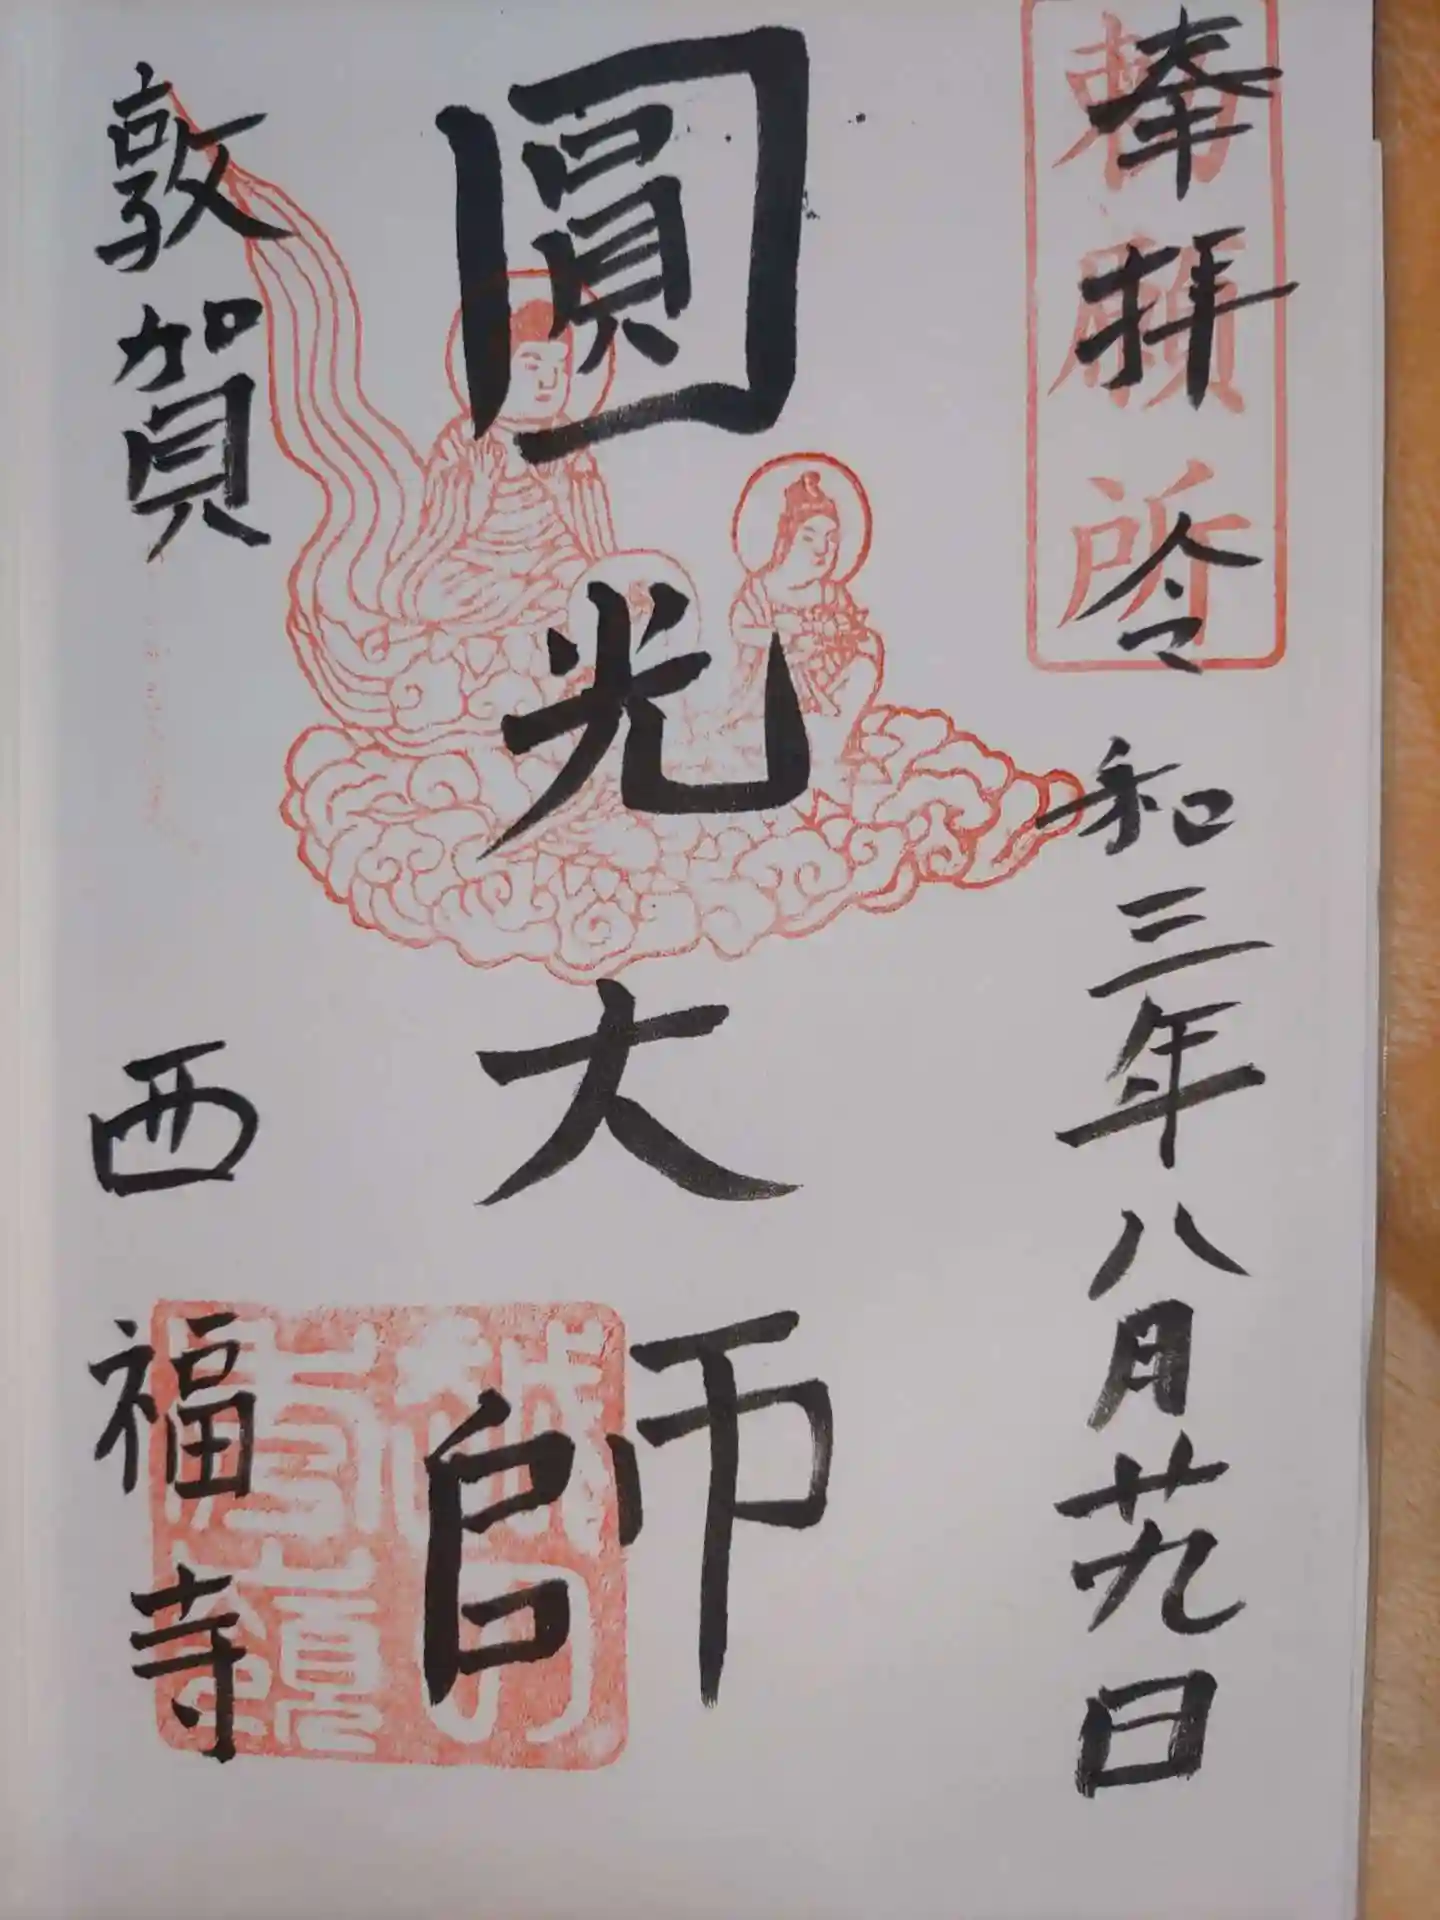 奉拝 令和三年八月廿九日
勅願所
圓光大師
敦賀 西福寺